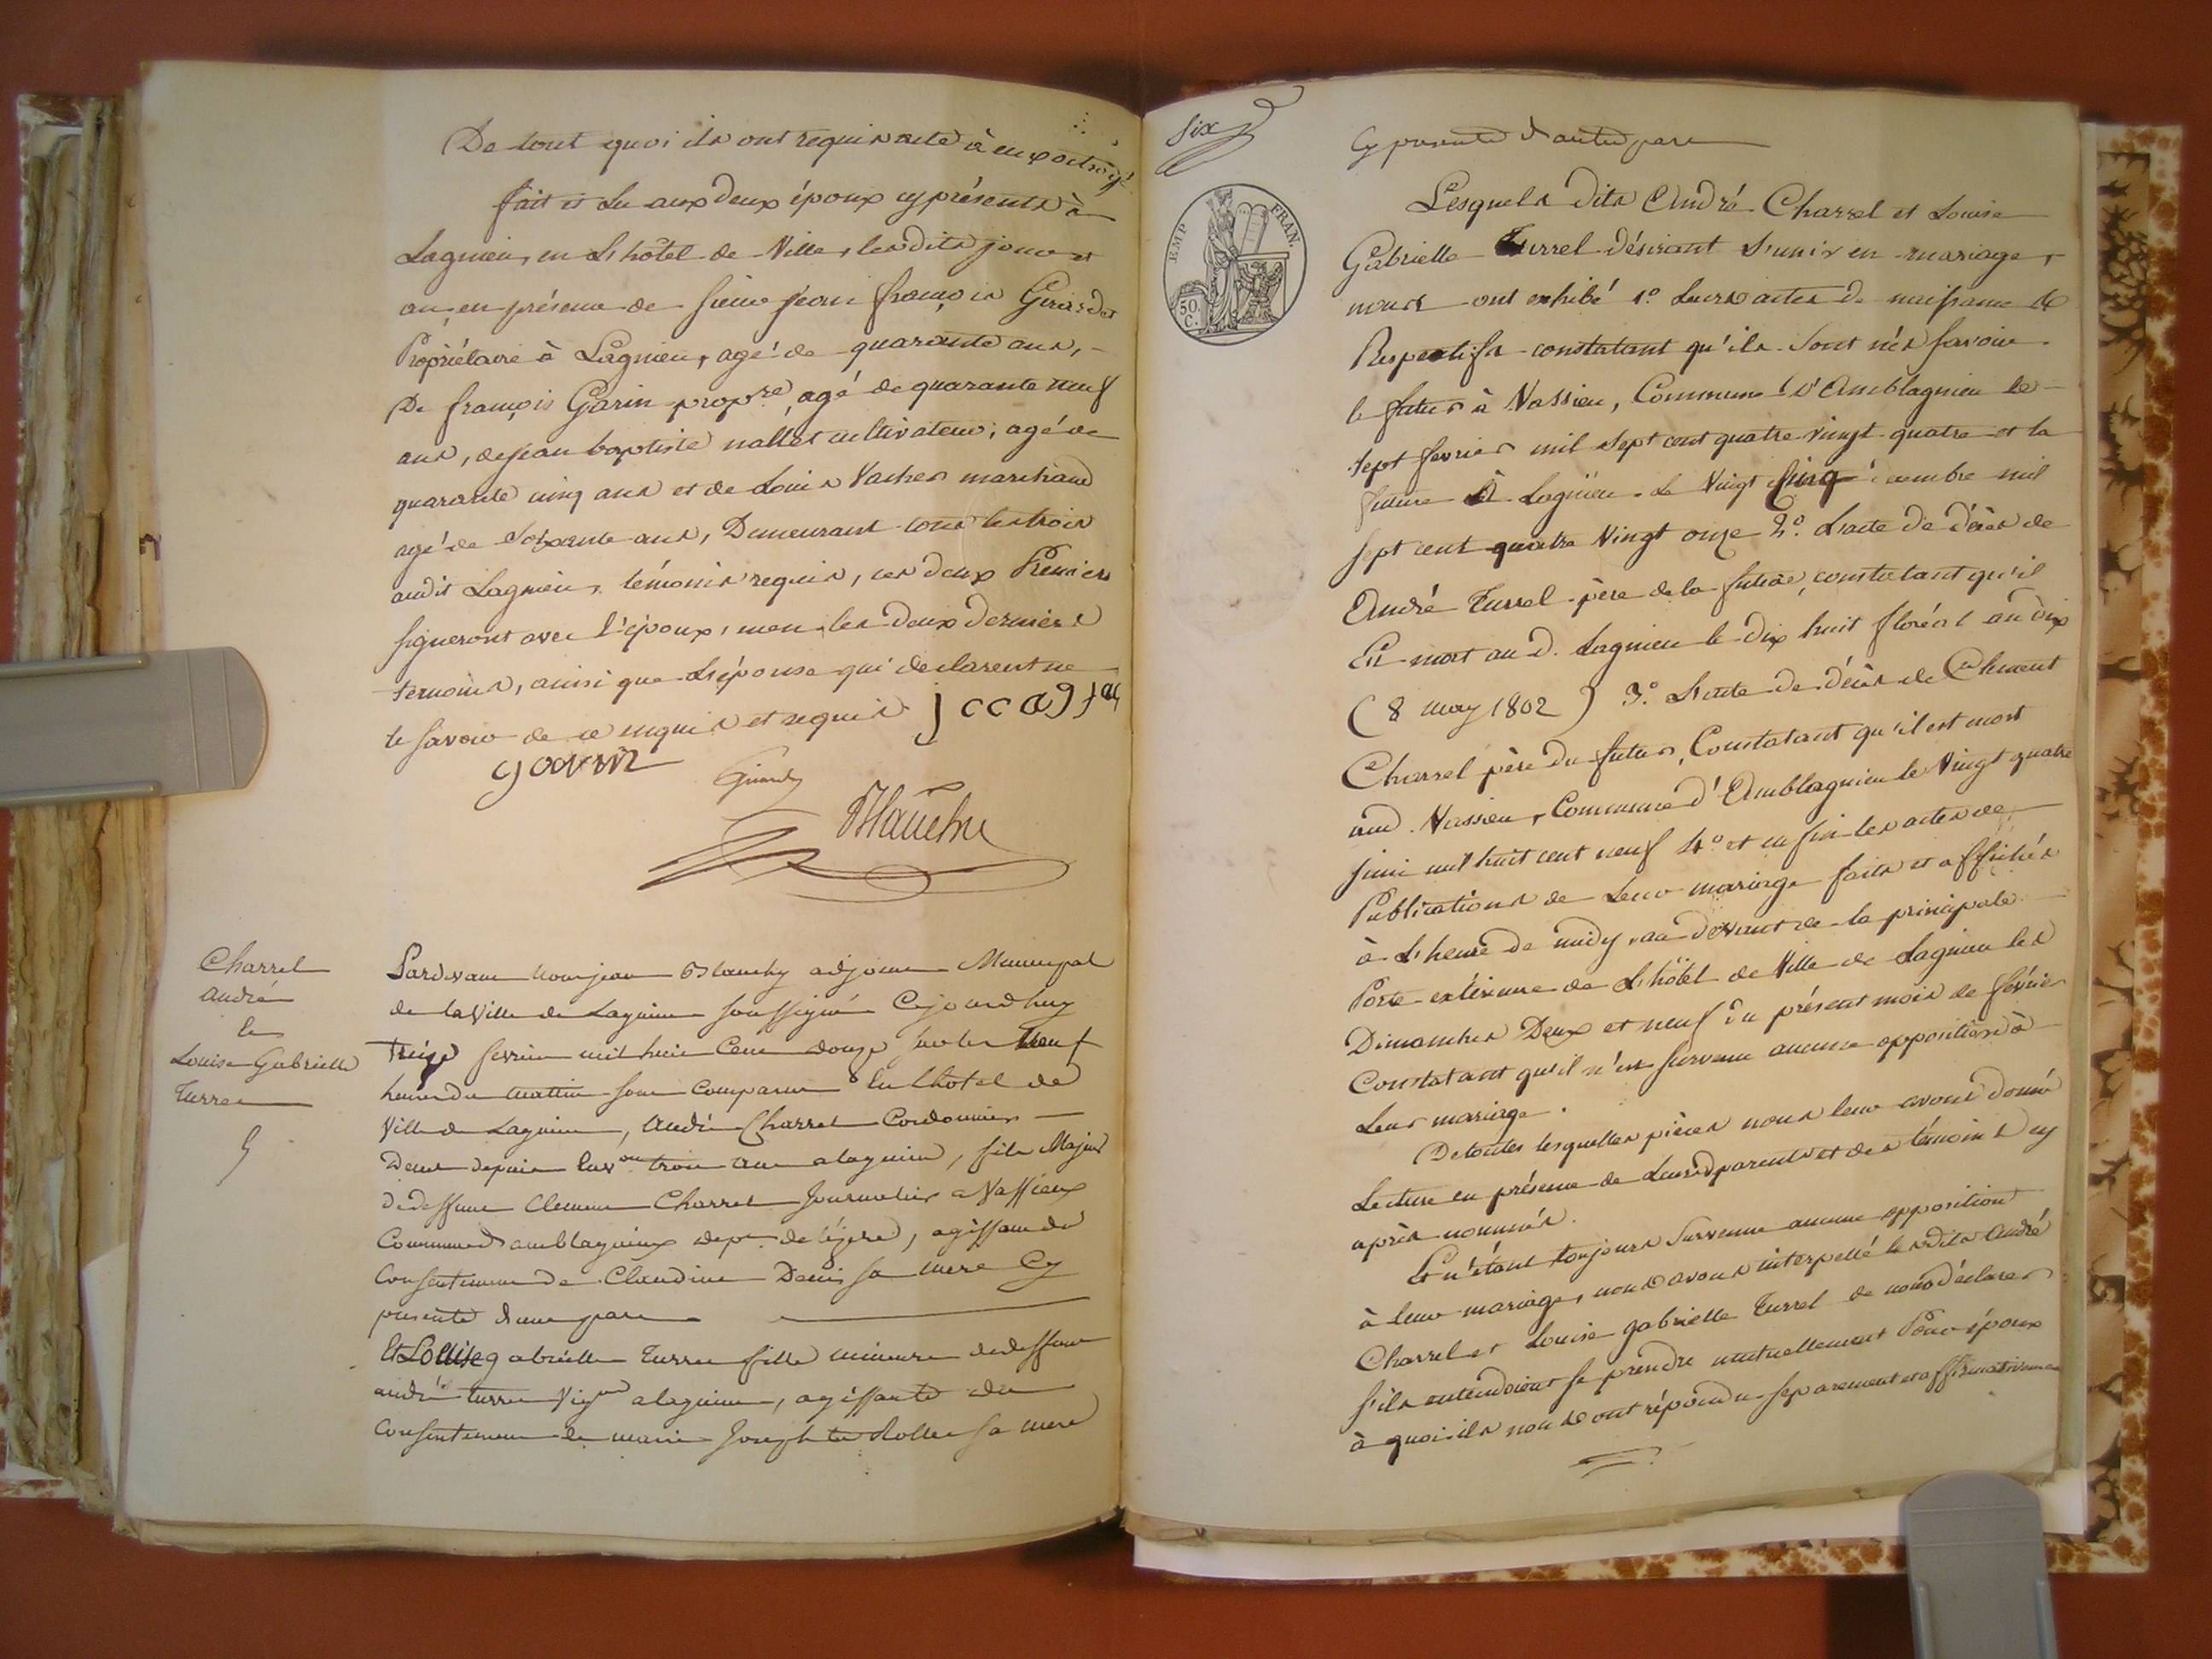 De tout quoi ils ont requis acte à eux octroyé
fait et Lu aux deux époux cy présents à
Lagnieu, en L'hôtel de Ville, lesdits jour et
an, en présence de sieur jean françois Girardet
Propriétaire à Lagnieu, agé de quarante ans,
De françois Garin propre, agé de quarante neuf
ans, de jean baptiste nallet cultivateur, agé de
quarante cinq ans et de Louis Vacher marchand
agé de soixante ans, Demeurant tous les trois
audit Lagnieu, témoins requis, ces deux Premiers
signeront avec l'époux, non les deux derniers
temoins, ainsi que L'épouse qui declarent ne
le savoir de ce enquis et requis
garin Girardet
Blanchy
Charrel
André
&
Louise Gabrielle
Turrel
Pardevant Nous jean Blanchy adjoint Municipal
de la Ville de Lagnieu soussigné Cejourdhuy
Treize fevrier mil huit Cent douze sur les neuf
heures du mattin sont Comparus En Lhotel de
Ville de Lagnieu, André Charrel Cordonnier
Demt depuis Environ trois ans a lagnieu, fils Majeur
de deffunt Clement Charrel Journalier a Vassieux
Commune d'amblagnieux dept de l'izere, agissant du
Consentement de Claudine Denis sa mere Cy
presente d'une part
Et Louise gabrielle Turrel fille mineure de deffunt
andré turrel Vigron a lagnieu, agissante du
Consentement de marie Josephte Rollet sa mere
six
EMP FRAN.
50 C.
Cy presente d'autre part
Lesquels dits André Charrel et Louise
Gabrielle Turrel désirant s'unir en mariage,
nous ont exhibé 1º Leurs actes de naissance
Respectifs constatant qu'ils sont nés savoir
le futur à Vassieu, Commune d'Amblagnieu le
sept fevrier mil sept cent quatre vingt quatre et la
future à Lagnieu le Vingt cinq mil
sept cent quatre Vingt onze 2º L'acte de décès de
André Turrel père de la future, constatant qu'il
Est mort au d. Lagnieu le dix huit floréal an dix
(8 may 1802) 3º L'acte de décès de Clement
Charrel père du futur, Constatant qu'il est mort
aud. Vassieu, Commune d'Amblagnieu le Vingt quatre
juin mil huit cent neuf 4º et en fin les actes de
Publications de Leur mariage faits et affichés
à L'heure de midy, au devant de la principale
Porte extérieure de L'hôtel de Ville de Lagnieu les
Dimanches Deux et neuf du présent mois de février
Constatant qu'il n'est survenu aucune opposition à
Leur mariage.
De toutes lesquelles pièces nous leur avons donné
Lecture en présence de Leurs parents et des témoins cy
après nommés.
Et n'étant toujours survenue aucune opposition
à leur mariage, nous avons interpellé lesdits André
Charrel et Louise gabrielle Turrel de nous déclarer
s'ils entendoient se prendre mutuellement Pour époux
à quoi ils nous ont répondu séparement et affirmativement